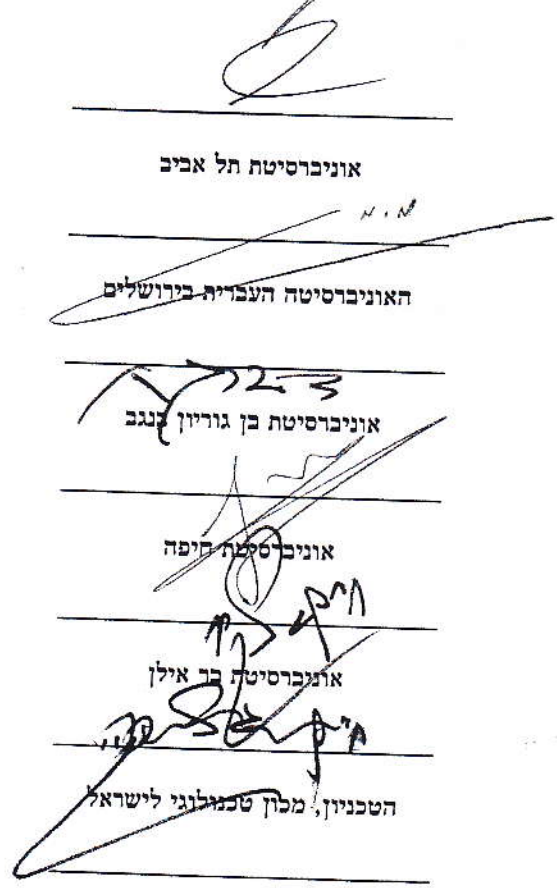 אוניברסיטת תל אביב
האוניברסיטה העברית בירושלים
אוניברסיטת בן גוריון בנגב
אוניברסיטת חיפה
אוניברסיטת בר אילן
הטכניון, מכון טכנולוגי לישראל